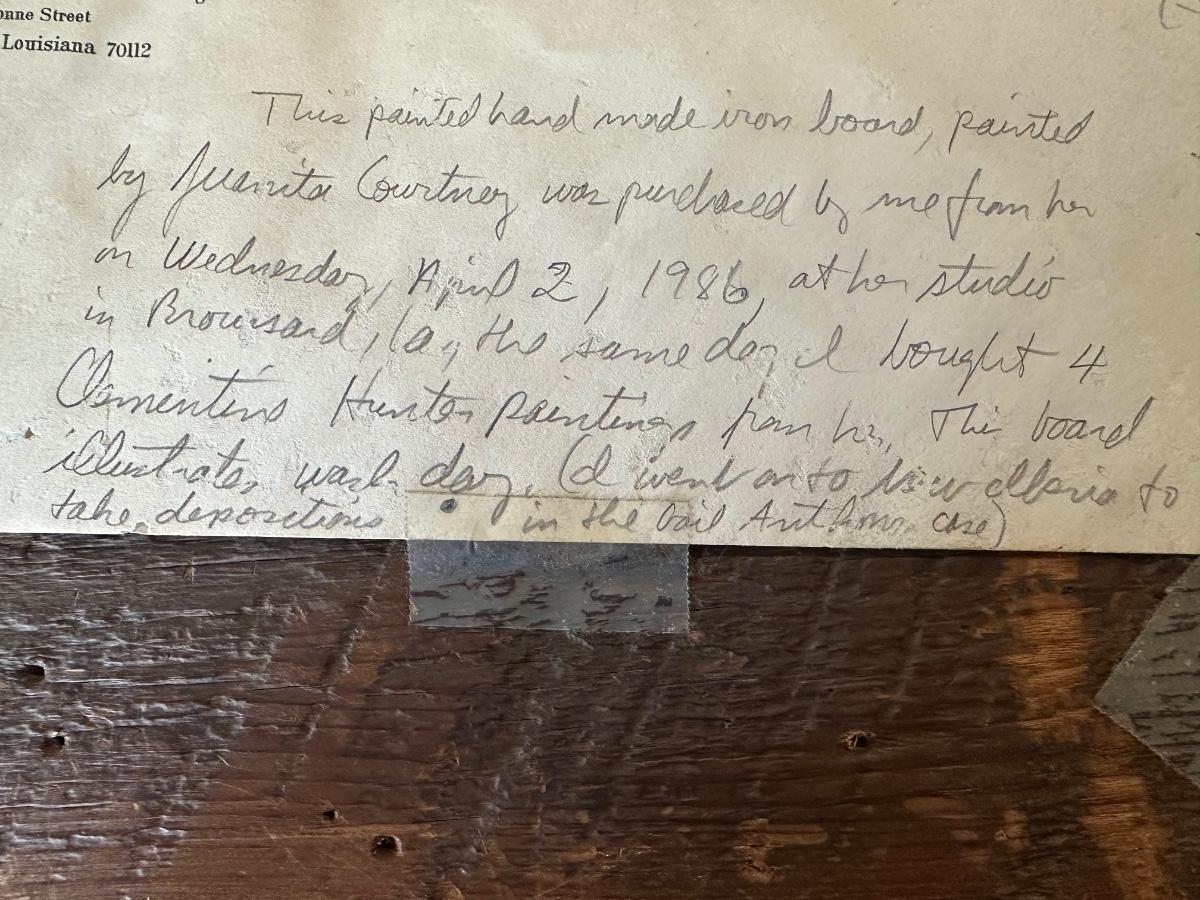 onne Street
Louisiana 70112
This painted hand made iron board, painted
by Juanita Courtney was purchased by me from her
on Wednesday, April 2, 1986, at her studio
in Broussard, La., the same day I bought 4
Clementine Hunter paintings from her. This board
illustrates wash day. (I went on to New Iberia to
take depositions in the case)